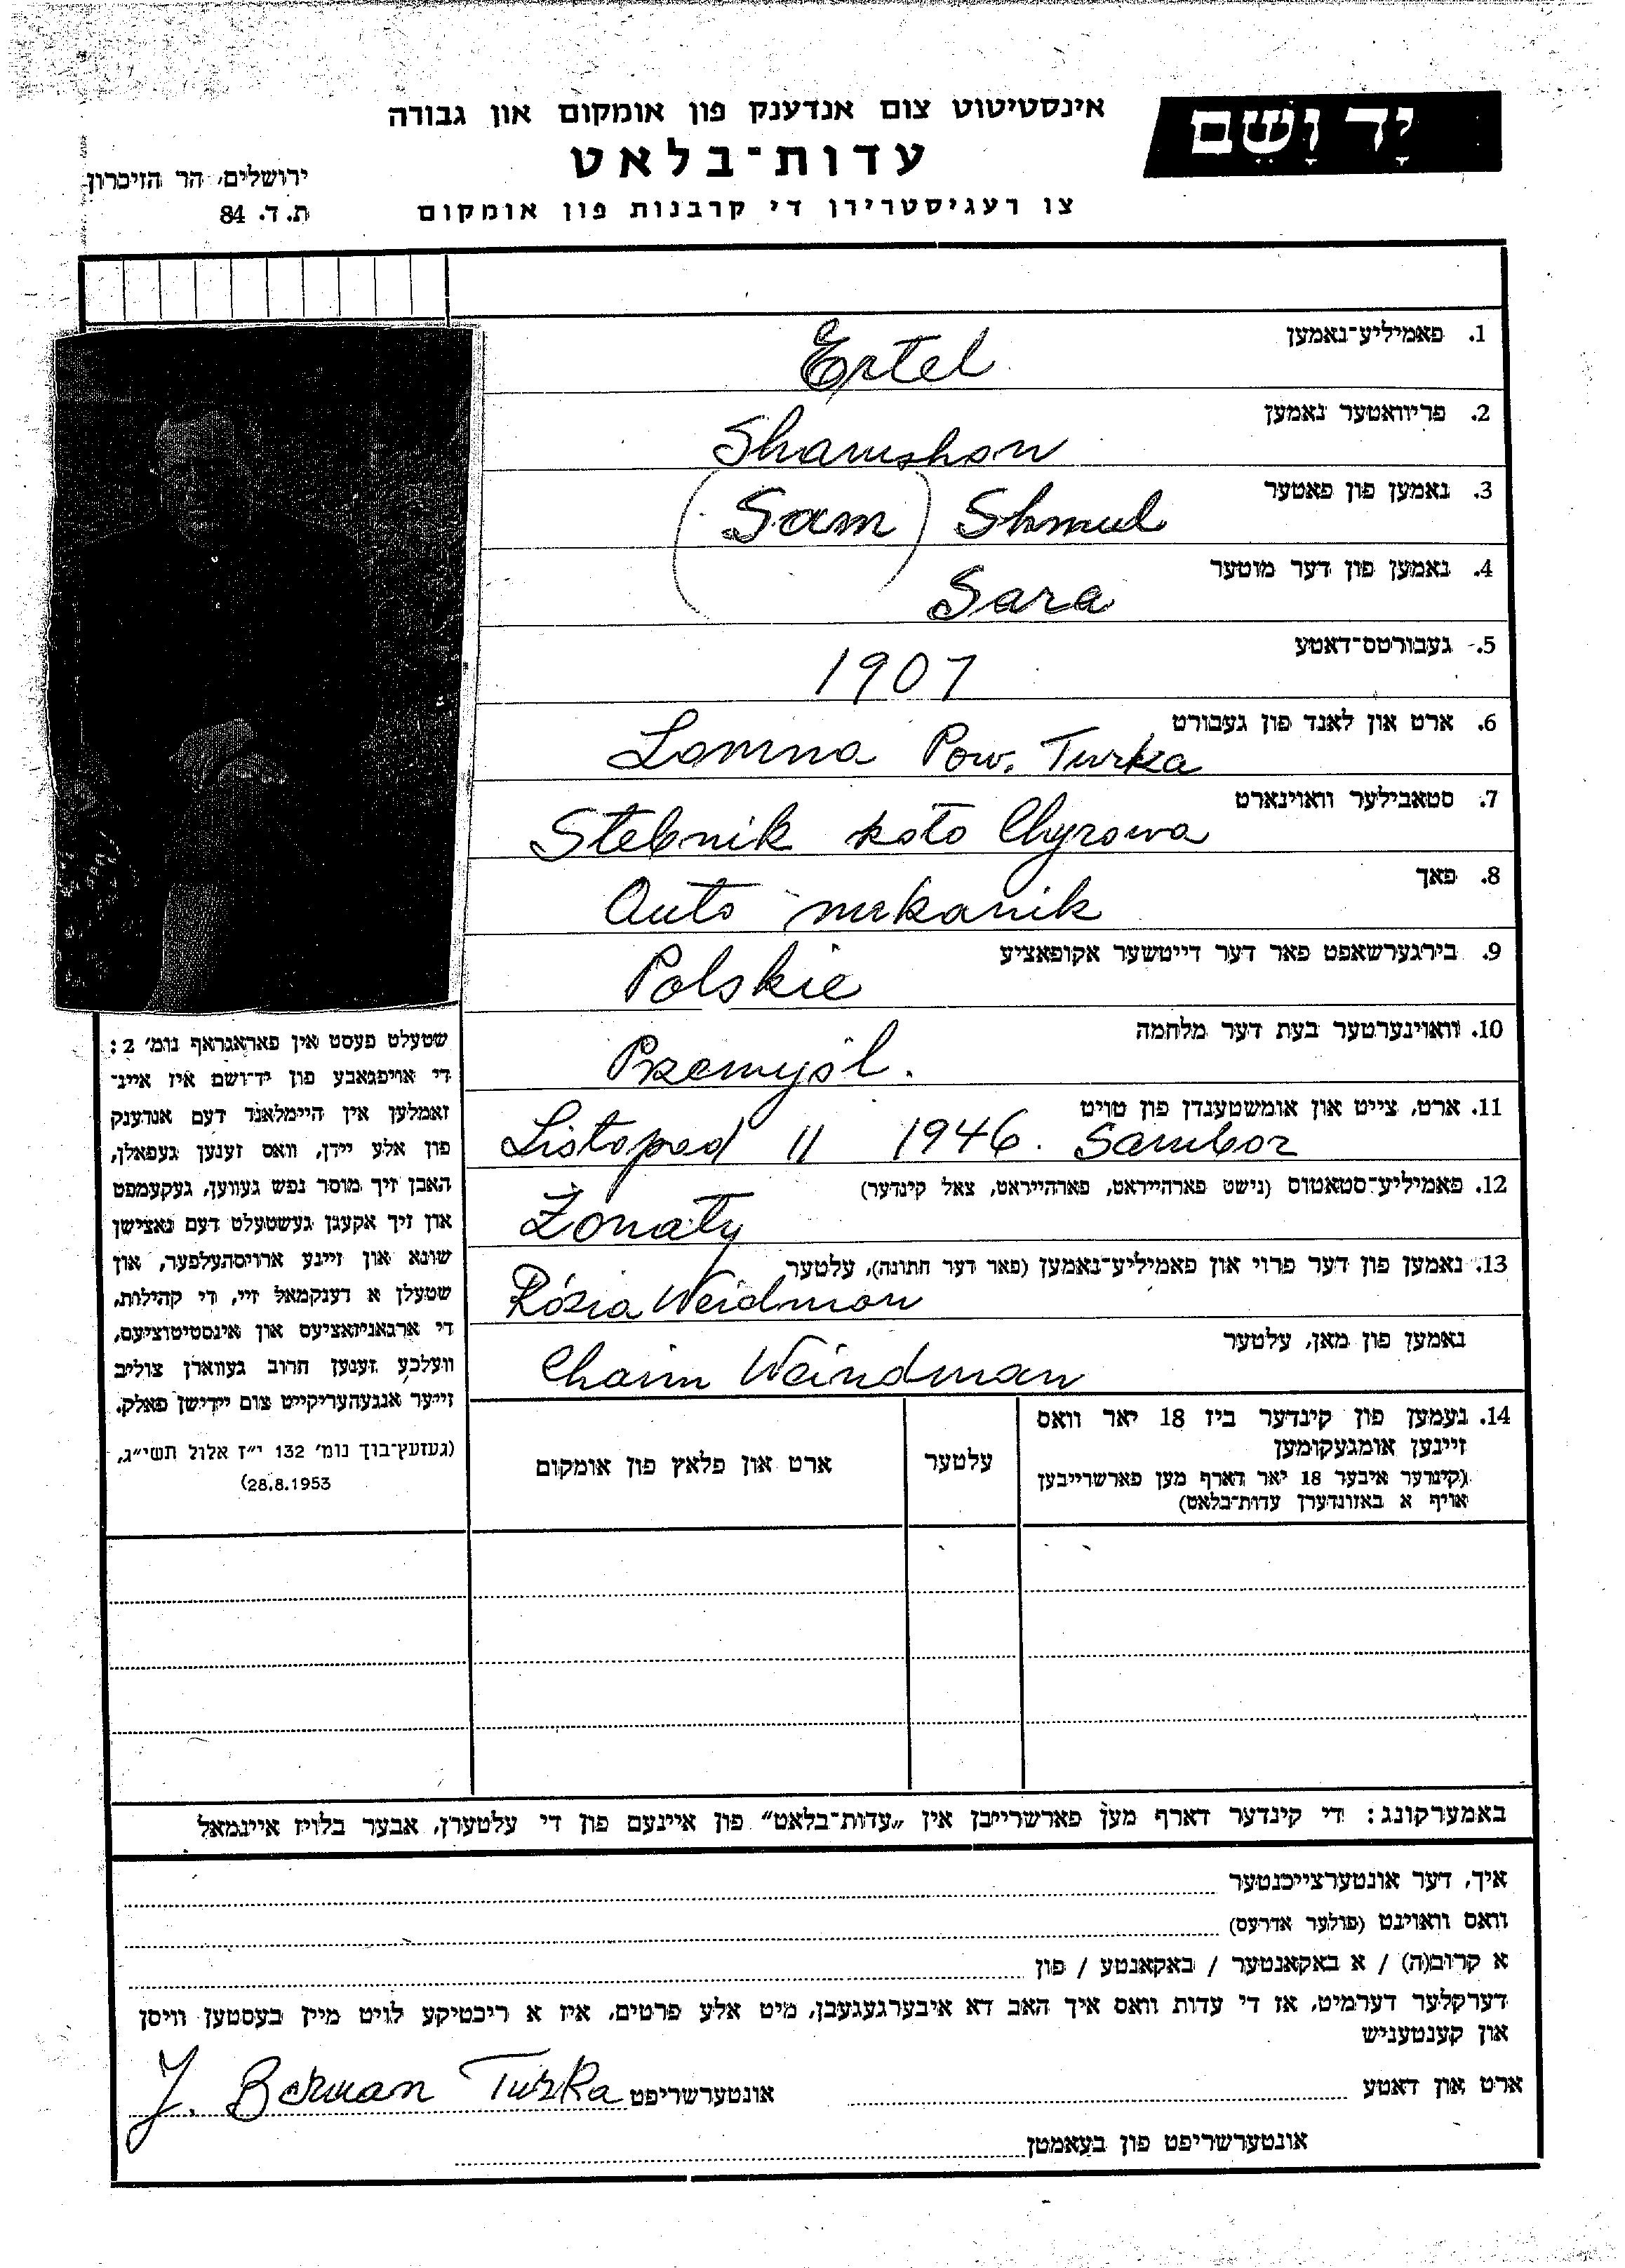 יָד וָשֵׁם
אינסטיטוט צום אנדענק פון אומקום און גבורה
עדות־בלאט
צו רעגיסטרירן די קרבנות פון אומקום
ירושלים, הר הזיכרון
ת. ד. 84
1. פאמיליע־נאמען
Ertel
2. פריוואטער נאמען
Shamshon
3. נאמען פון פאטער
(Sam) Shmul
4. נאמען פון דער מוטער
Sara
5. געבורטס־דאטע
1907
6. ארט און לאנד פון געבורט
Lomna Pow. Turka
7. סטאבילער וואוינארט
Stebnik koło Chyrowa
8. פאך
Auto mekanik
9. בירגערשאפט פאר דער דייטשער אקופאציע
Polskie
10. וואוינערטער בעת דער מלחמה
Przemyśl.
11. ארט, צייט און אומשטענדן פון טויט
Listopad 11 1946. Sambor
12. פאמיליע־סטאטוס (נישט פארהייראט, פארהייראט, צאל קינדער)
Żonaty
13. נאמען פון דער פרוי און פאמיליע־נאמען (פאר דער חתונה), עלטער
Rózia Weidman
נאמען פון מאן, עלטער
Chaim Weindman
שטעלט פעסט אין פאראגראף נומ׳ 2:
די אויפגאבע פון יד־ושם איז איינ־
זאמלען אין היימלאנד דעם אנדענק
פון אלע יידן, וואס זענען געפאלן,
האבן זיך מוסר נפש געווען, געקעמפט
און זיך אקעגן געשטעלט דעם נאצישן
שונא און זיינע ארויסהעלפער, און
שטעלן א דענקמאל זיי, די קהילות,
די ארגאניזאציעס און אינסטיטוציעס,
וועלכע זענען חרוב געווארן צוליב
זייער אנגעהעריקייט צום יידישן פאלק.
(געזעץ־בוך נומ׳ 132 י״ז אלול תשי״ג,
28.8.1953)
14. נעמען פון קינדער ביז 18 יאר וואס
זיינען אומגעקומען
(קינדער איבער 18 יאר דארף מען פארשרייבען
אויף א באזונדערן עדות־בלאט)
עלטער
ארט און פלאץ פון אומקום
באמערקונג: די קינדער דארף מען פארשרייבן אין „עדות־בלאט“ פון איינעם פון די עלטערן, אבער בלויז איינמאל
איך, דער אונטערצייכנטער
וואס וואוינט (פולער אדרעס)
א קרוב(ה) / א באקאנטער / באקאנטע / פון
דערקלער דערמיט, אז די עדות וואס איך האב דא איבערגעגעבן, מיט אלע פרטים, איז א ריכטיקע לויט מיין בעסטען וויסן
און קענטעניש
ארט און דאטע
אונטערשריפט J. Berman Turka
אונטערשריפט פון בעאמטן